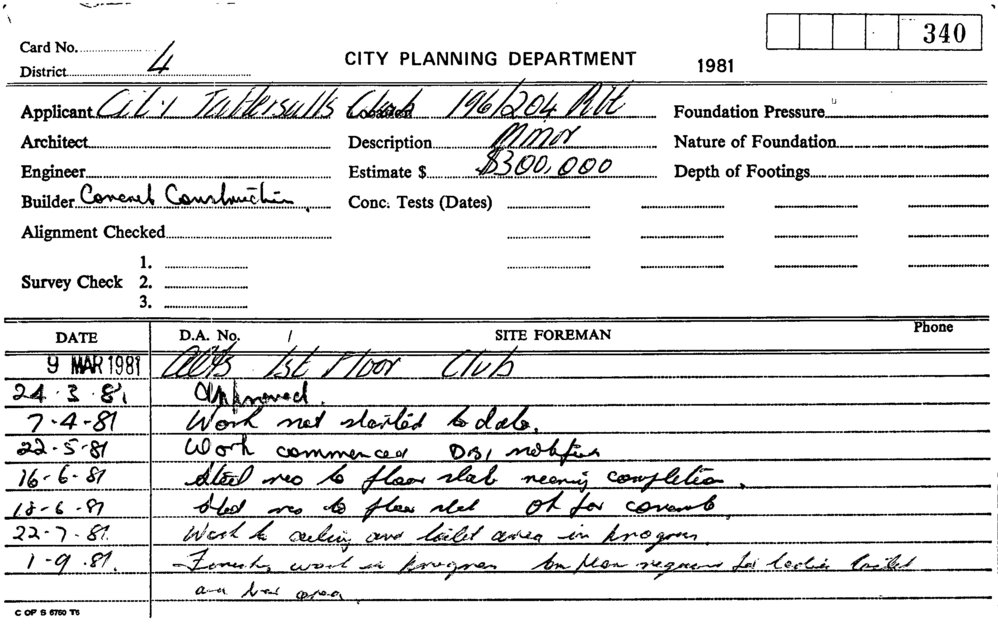 340
Card No.
District 4
CITY PLANNING DEPARTMENT
1981
Applicant City Tattersalls Club Location 196/204 Pitt Foundation Pressure
Architect Description Minor Nature of Foundation
Engineer Estimate $ $300,000 Depth of Footings
Builder Concrete Constructions Conc. Tests (Dates)
Alignment Checked
1.
Survey Check 2.
3.
DATE D.A. No. / SITE FOREMAN Phone
9 MAR 1981 Alts 1st Floor Club
24.3.81 Approved.
7-4-81 Work not started to date.
22-5-81 Work commenced DBI notified
16-6-81 Steel reo to floor slab nearing completion.
18-6-81 Steel reo to floor slab OK for concrete.
22-7-81. Work to ceiling and toilet area in progress.
1-9.81. work in progress for toilet
and bar area.
C OF S 6760 T6